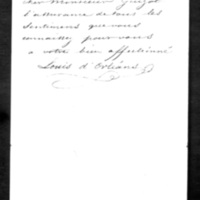 cher Monsieur Guizot
l'assurance de tous les
sentiments que vous
connaissez pour vous
à votre bien affectionné
Louis d'Orléans